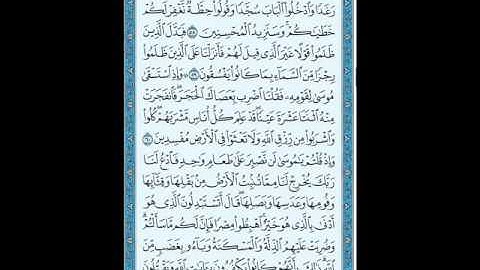 رَغَدًا وَادْخُلُوا الْبَابَ سُجَّدًا وَقُولُوا حِطَّةٌ نَغْفِرْ لَكُمْ
خَطَايَاكُمْ وَسَنَزِيدُ الْمُحْسِنِينَ ٥٨ فَبَدَّلَ الَّذِينَ
ظَلَمُوا قَوْلًا غَيْرَ الَّذِي قِيلَ لَهُمْ فَأَنْزَلْنَا عَلَى الَّذِينَ ظَلَمُوا
رِجْزًا مِنَ السَّمَاءِ بِمَا كَانُوا يَفْسُقُونَ ٥٩ وَإِذِ اسْتَسْقَى
مُوسَى لِقَوْمِهِ فَقُلْنَا اضْرِبْ بِعَصَاكَ الْحَجَرَ فَانْفَجَرَتْ
مِنْهُ اثْنَتَا عَشْرَةَ عَيْنًا قَدْ عَلِمَ كُلُّ أُنَاسٍ مَشْرَبَهُمْ كُلُوا
وَاشْرَبُوا مِنْ رِزْقِ اللَّهِ وَلَا تَعْثَوْا فِي الْأَرْضِ مُفْسِدِينَ
٦٠ وَإِذْ قُلْتُمْ يَا مُوسَى لَنْ نَصْبِرَ عَلَى طَعَامٍ وَاحِدٍ فَادْعُ لَنَا
رَبَّكَ يُخْرِجْ لَنَا مِمَّا تُنْبِتُ الْأَرْضُ مِنْ بَقْلِهَا وَقِثَّائِهَا
وَفُومِهَا وَعَدَسِهَا وَبَصَلِهَا قَالَ أَتَسْتَبْدِلُونَ الَّذِي هُوَ
أَدْنَى بِالَّذِي هُوَ خَيْرٌ اهْبِطُوا مِصْرًا فَإِنَّ لَكُمْ مَا سَأَلْتُمْ
وَضُرِبَتْ عَلَيْهِمُ الذِّلَّةُ وَالْمَسْكَنَةُ وَبَاءُوا بِغَضَبٍ مِنَ
اللَّهِ ذَلِكَ بِأَنَّهُمْ كَانُوا يَكْفُرُونَ بِآيَاتِ اللَّهِ وَيَقْتُلُونَ